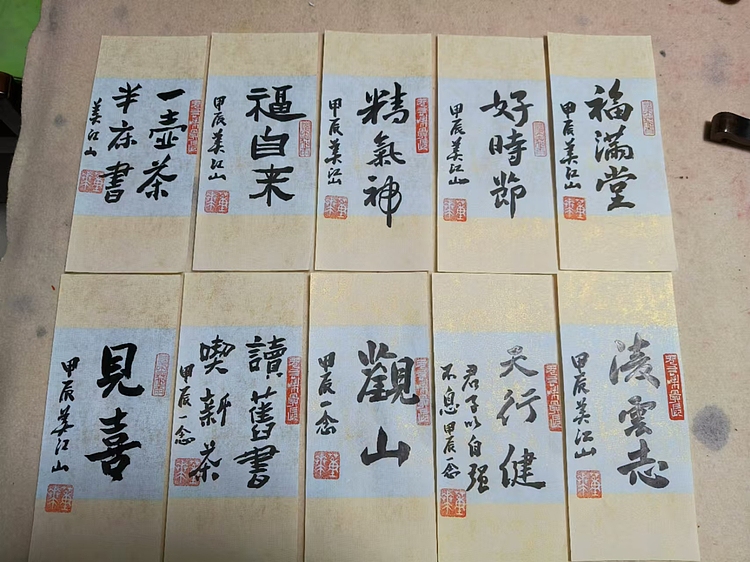 一壺茶
半床書
美江山
福自来
甲辰美江山
精氣神
甲辰美江山
好時節
甲辰美江山
福滿堂
甲辰美江山
見喜
甲辰美江山
讀舊書
喫新茶
甲辰一念
觀山
甲辰一念
天行健
君子以自强
不息 甲辰一念
凌雲志
甲辰美江山